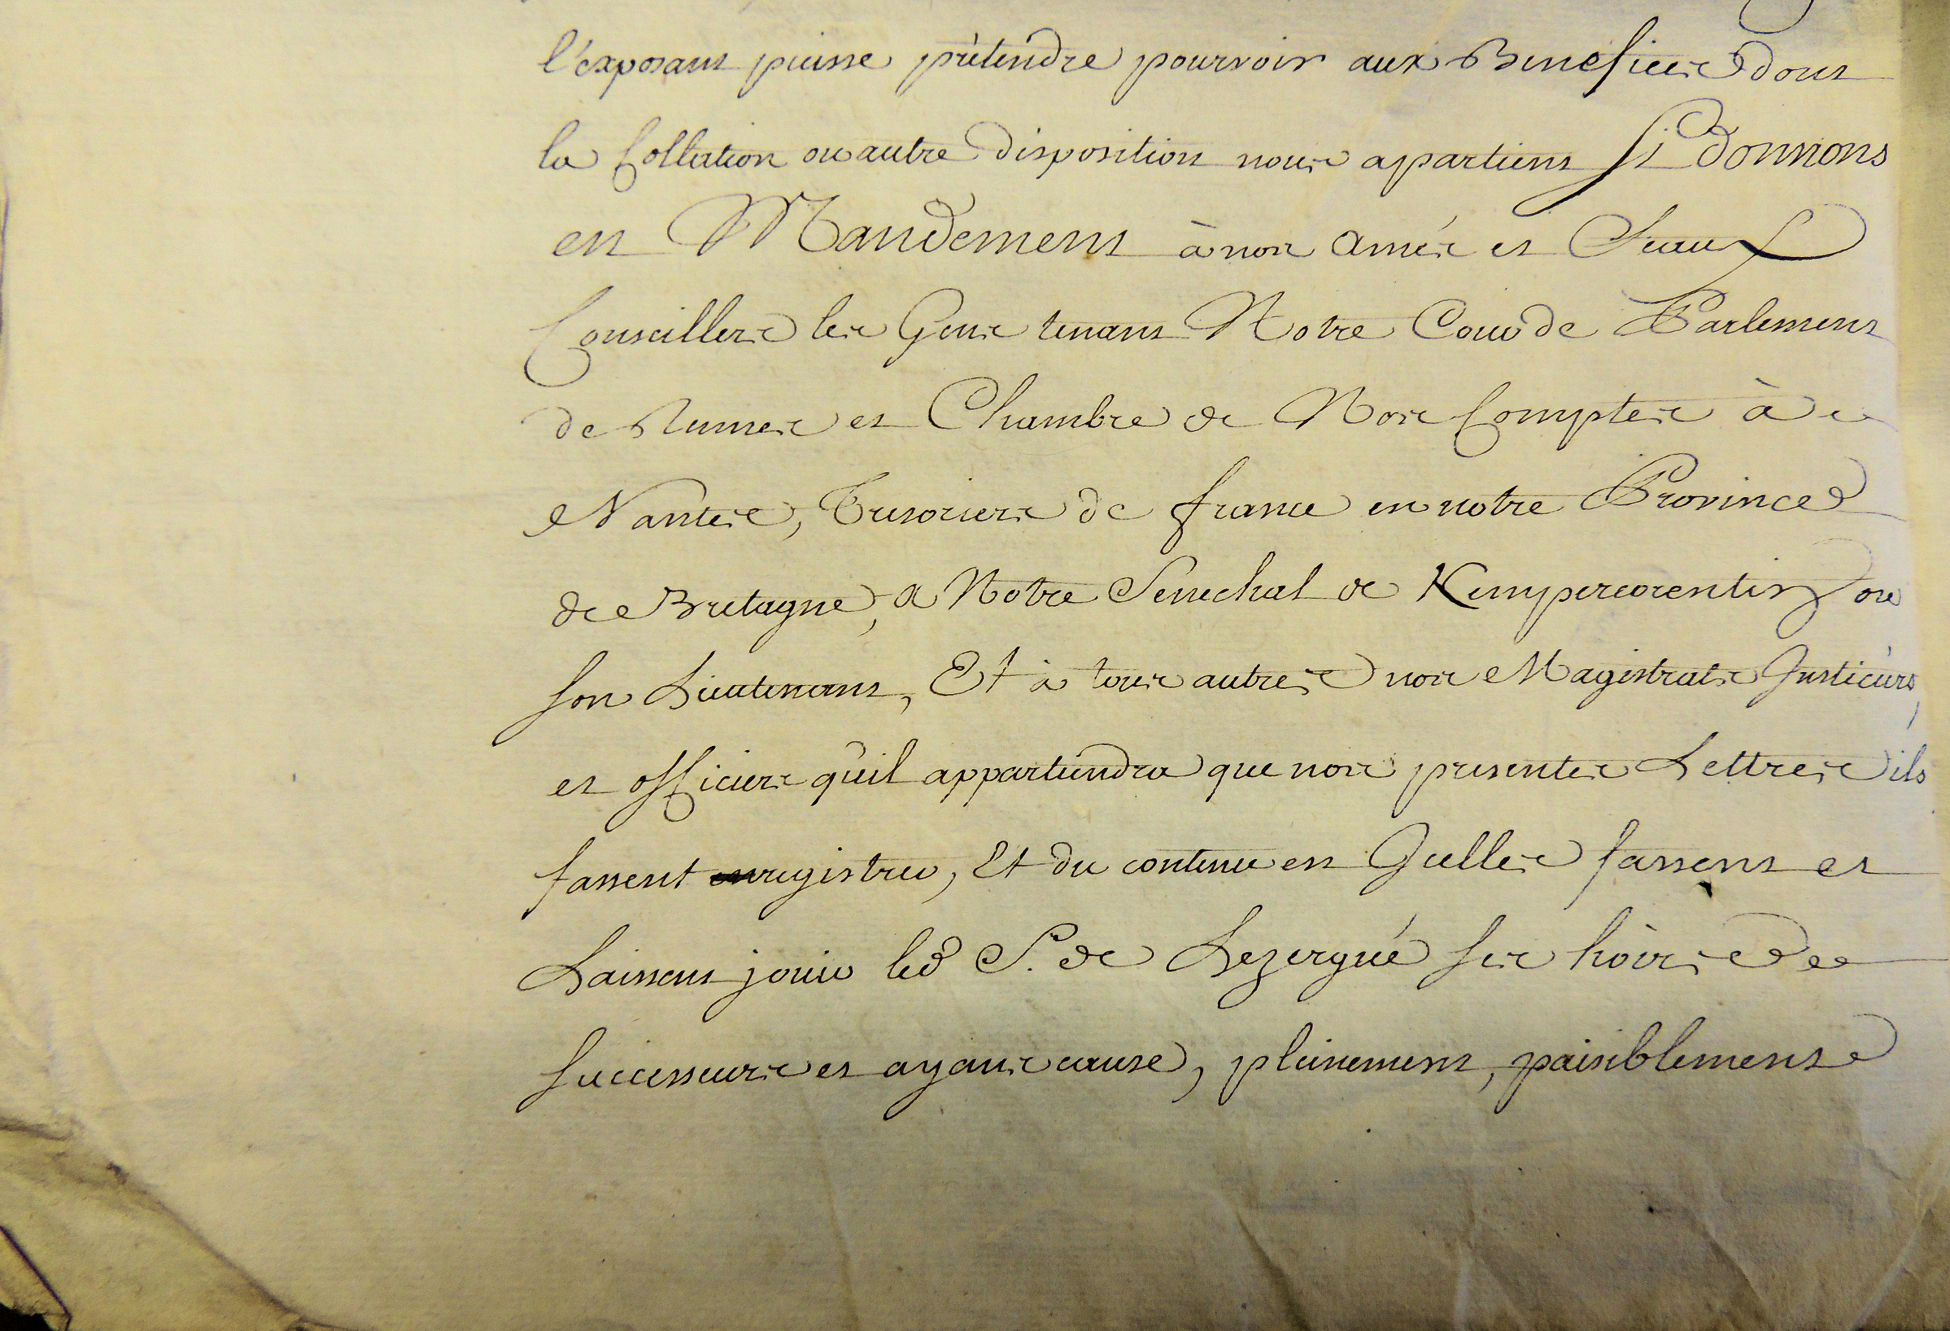 l'éxposant puisse prétendre pourvoir aux Benefices dont
la Collation ou autre disposition nous apartient Si Donnons
en Mandement à nos amés et Feaux
Conseillers les Gens tenans Notre Cour de Parlement
de Rennes et Chambre de Nos Comptes à
Nantes, Tresoriers de france en notre Province
de Bretagne, a Notre Senechal de Kimpercorentin ou
son Lieutenant, Et à tous autres nos Magistrats Justiciers,
et officiers qu'il appartiendra que nos presentes Lettres ils
fassent enregistrer, Et du contenu en Icelles fassent et
Laissent jouir led S. de Lezergué ses hoirs
successeurs et ayans cause, pleinement, paisiblement